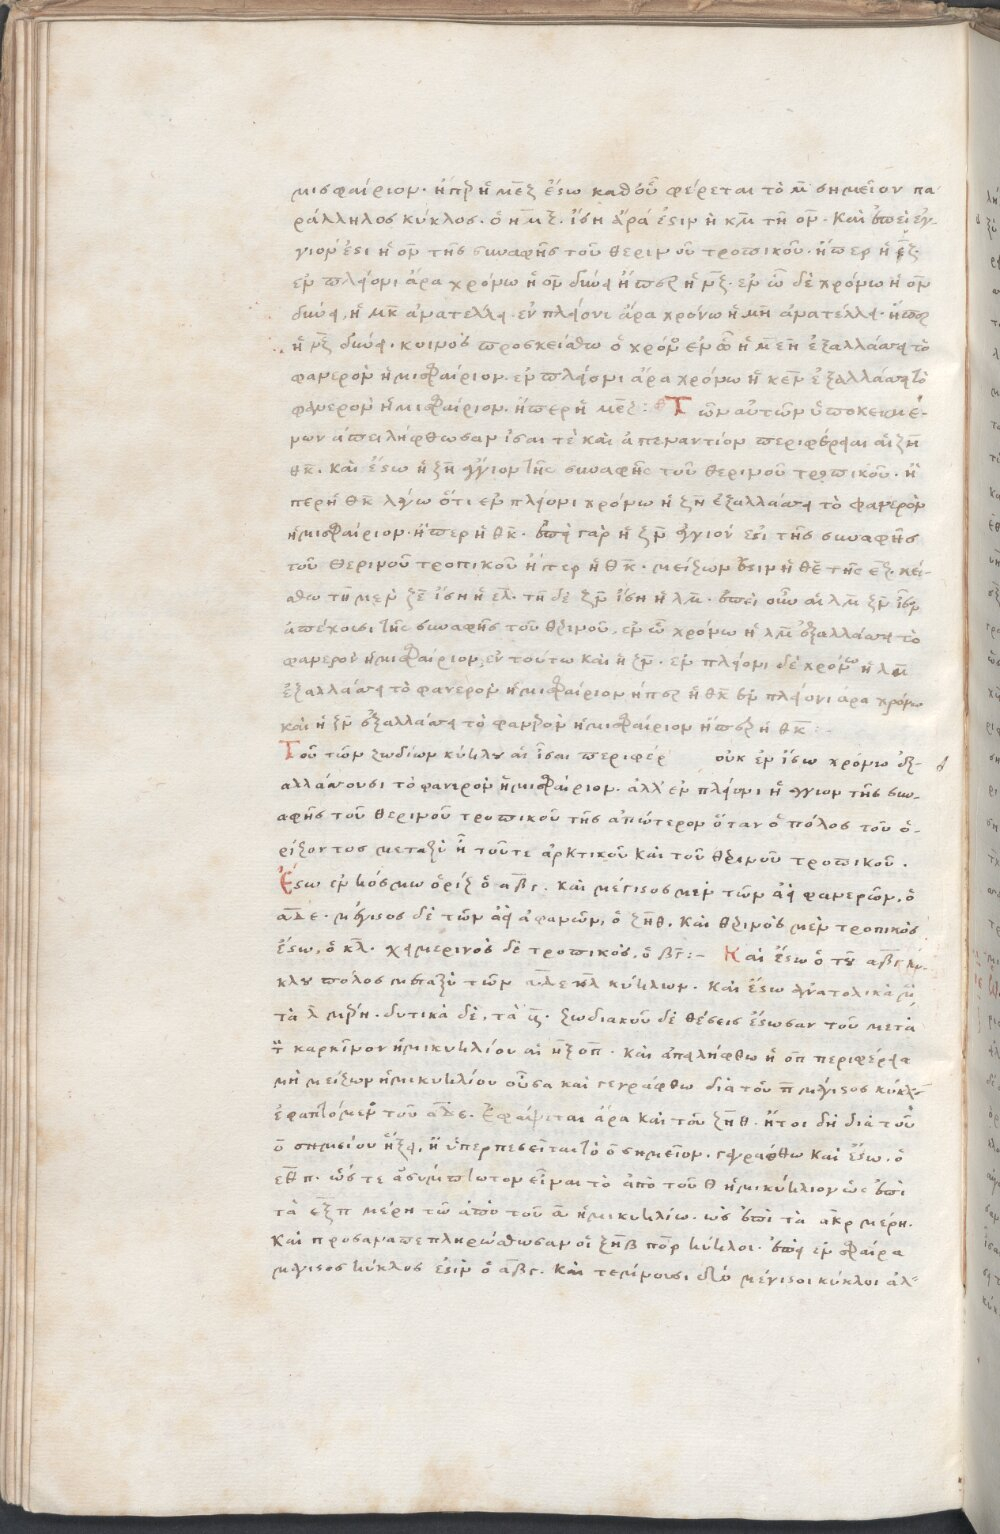 μισφαίριον· ἤπερ ἡ μεξ ἔστω καθ' οὗ φέρεται τὸ μ σημεῖον πα
ράλληλος κύκλος. ὁ ημξ. ἴση ἄρα ἐστὶν ἡ κμ τῇ ομ. Καὶ ἐπεὶ ἔγ-
γιόν ἐστι ἡ ομ τῆς συναφῆς τοῦ θερινοῦ τροπικοῦ. ἤπερ ἡ
ἐν πλείονι ἄρα χρόνω ἡ ομ δύνει ἤπερ ἡ μξ. ἐν ὧ δὲ χρόνω ἡ ομ
δύνει, ἡ μκ ἀνατέλλει. ἐν πλείονι ἄρα χρόνω ἡ μη ἀνατέλλει. ἤπερ
ἡ μξ δύνει. κοινὸς προσκείσθω ὁ χρόνος ἐν ὧ ἡ μεη ἐξαλλάσσει τὸ
φανερὸν ἡμισφαίριον. ἐν πλείονι ἄρα χρόνω ἡ κεμ ἐξαλλάσσει τὸ
φανερὸν ἡμισφαίριον. ἤπερ ἡ μεξ: Τῶν αὐτῶν ὑποκειμέ-
νων ἀπειλήφθωσαν ἴσαι τὲ καὶ ἀπεναντίον περιφέρειαι αἱ ζη
θκ. καὶ ἔστω ἡ ζη ἔγγιον τῆς συναφῆς τοῦ θερινοῦ τροπικοῦ. ἤ
περ ἡ θκ λέγω ὅτι ἐν πλείονι χρόνω ἡ ζη ἐξαλλάσσει τὸ φανερὸν
ἡμισφαίριον. ἤπερ ἡ θκ. ἐπεὶ γὰρ ἡ ζη ἔγγιόν ἐστι τῆς συναφῆς
τοῦ θερινοῦ τροπικοῦ ἤπερ ἡ θκ. μείζων ἐστὶν ἡ θε τῆς εζ. κεί-
σθω τῇ μὲν ζε ἴση ἡ ελ. τῇ δὲ ζη ἴση ἡ λμ. ἐπεὶ οὖν αἱ λμ ζη ἴσον
ἀπέχουσι τῆς συναφῆς τοῦ θερινοῦ, ἐν ὧ χρόνω ἡ λμ ἐξαλλάσσει τὸ
φανερὸν ἡμισφαίριον, ἐν τούτω καὶ ἡ ζη. ἐν πλείονι δὲ χρόνω ἡ λμ
ἐξαλλάσσει τὸ φανερὸν ἡμισφαίριον ἤπερ ἡ θκ ἐν πλείονι ἄρα χρόνω
καὶ ἡ ζη ἐξαλλάσσει τὸ φανερὸν ἡμισφαίριον ἤπερ ἡ θκ:
Τοῦ τῶν ζωδίων κύκλου αἱ ἴσαι περιφέρ οὐκ ἐν ἴσω χρόνω ἐξ-
αλλάσσουσι τὸ φανερὸν ἡμισφαίριον. ἀλλ' ἐν πλείονι ἡ ἔγγιον τῆς συν-
αφῆς τοῦ θερινοῦ τροπικοῦ τῆς ἀπώτερον ὅταν ὁ πόλος τοῦ ὁ-
ρίζοντος μεταξὺ ἦ τοῦτε ἀρκτικοῦ καὶ τοῦ θερινοῦ τροπικοῦ.
Ἔστω ἐν κόσμω ὁρίζ ὁ αβγ. καὶ μέγιστος μὲν τῶν ἀεὶ φανερῶν, ὁ
αδε. μέγιστος δὲ τῶν ἀεὶ ἀφανῶν, ὁ ζηθ. καὶ θερινὸς μὲν τροπικὸς
ἔστω, ὁ κλ. χειμερινὸς δὲ τροπικὸς, ὁ βγ:- Καὶ ἔστω ὁ τοῦ αβγ κυ-
κλου πόλος μεταξὺ τῶν αδε κλ κύκλων. καὶ ἔστω ἀνατολικὰ μ
τὰ λ μέρη. δυτικὰ δὲ, τὰ ζωδιακοῦ δὲ θέσεις ἔστωσαν τοῦ μετὰ
τ καρκῖνον ἡμικυκλίου αἱ ηξοπ. καὶ ἀπειλήφθω ἡ οπ περιφέρεια
μὴ μείζων ἡμικυκλίου οὖσα καὶ γεγράφθω διὰ τοῦ π μέγιστος κύκλος
ἐφαπτόμενος τοῦ αδε. Ἐφάψεται ἄρα καὶ τοῦ ζηθ. ἤτοι δὴ διὰ τοῦ
ο σημείου ἥξει, ἢ ὑπερπεσεῖται τὸ ο σημεῖον. γεγράφθω καὶ ἔστω. ὁ
εθπ. ὥστε ἀσύμπτωτον εἶναι τὸ ἀπὸ τοῦ θ ἡμικύκλιον ὡς ἐπὶ
τὰ εξπ μέρη τῶ ἀπὸ τοῦ α ἡμικυκλίω. ὡς ἐπὶ τὰ ακρ μέρη.
Καὶ προσαναπεπληρώσθωσαν οἱ ζηβ πορ κύκλοι. ἐπεὶ ἐν σφαίρα
μέγιστος κύκλος ἐστὶν ὁ αβγ. καὶ τέμνουσι δύο μέγιστοι κύκλοι ἀλ